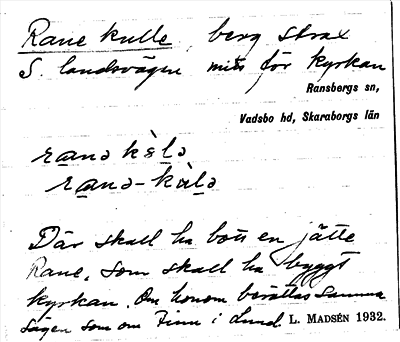 Rane kulle, berg strax
S. landsvägen mitt för kyrkan
Ransbergs sn,
Vadsbo hd, Skaraborgs län
Där skall ha bott en jätte
Rane, som skall ha byggt
kyrkan. Om honom berättas samma
sägen som om Finn i Lund. L. MADSÉN 1932.